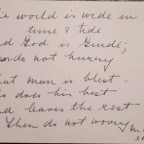 he world is wide in
time & tide
nd God is Guide;
do not hurry
at man is blest
o does his best
nd leaves the rest
Then do not worry